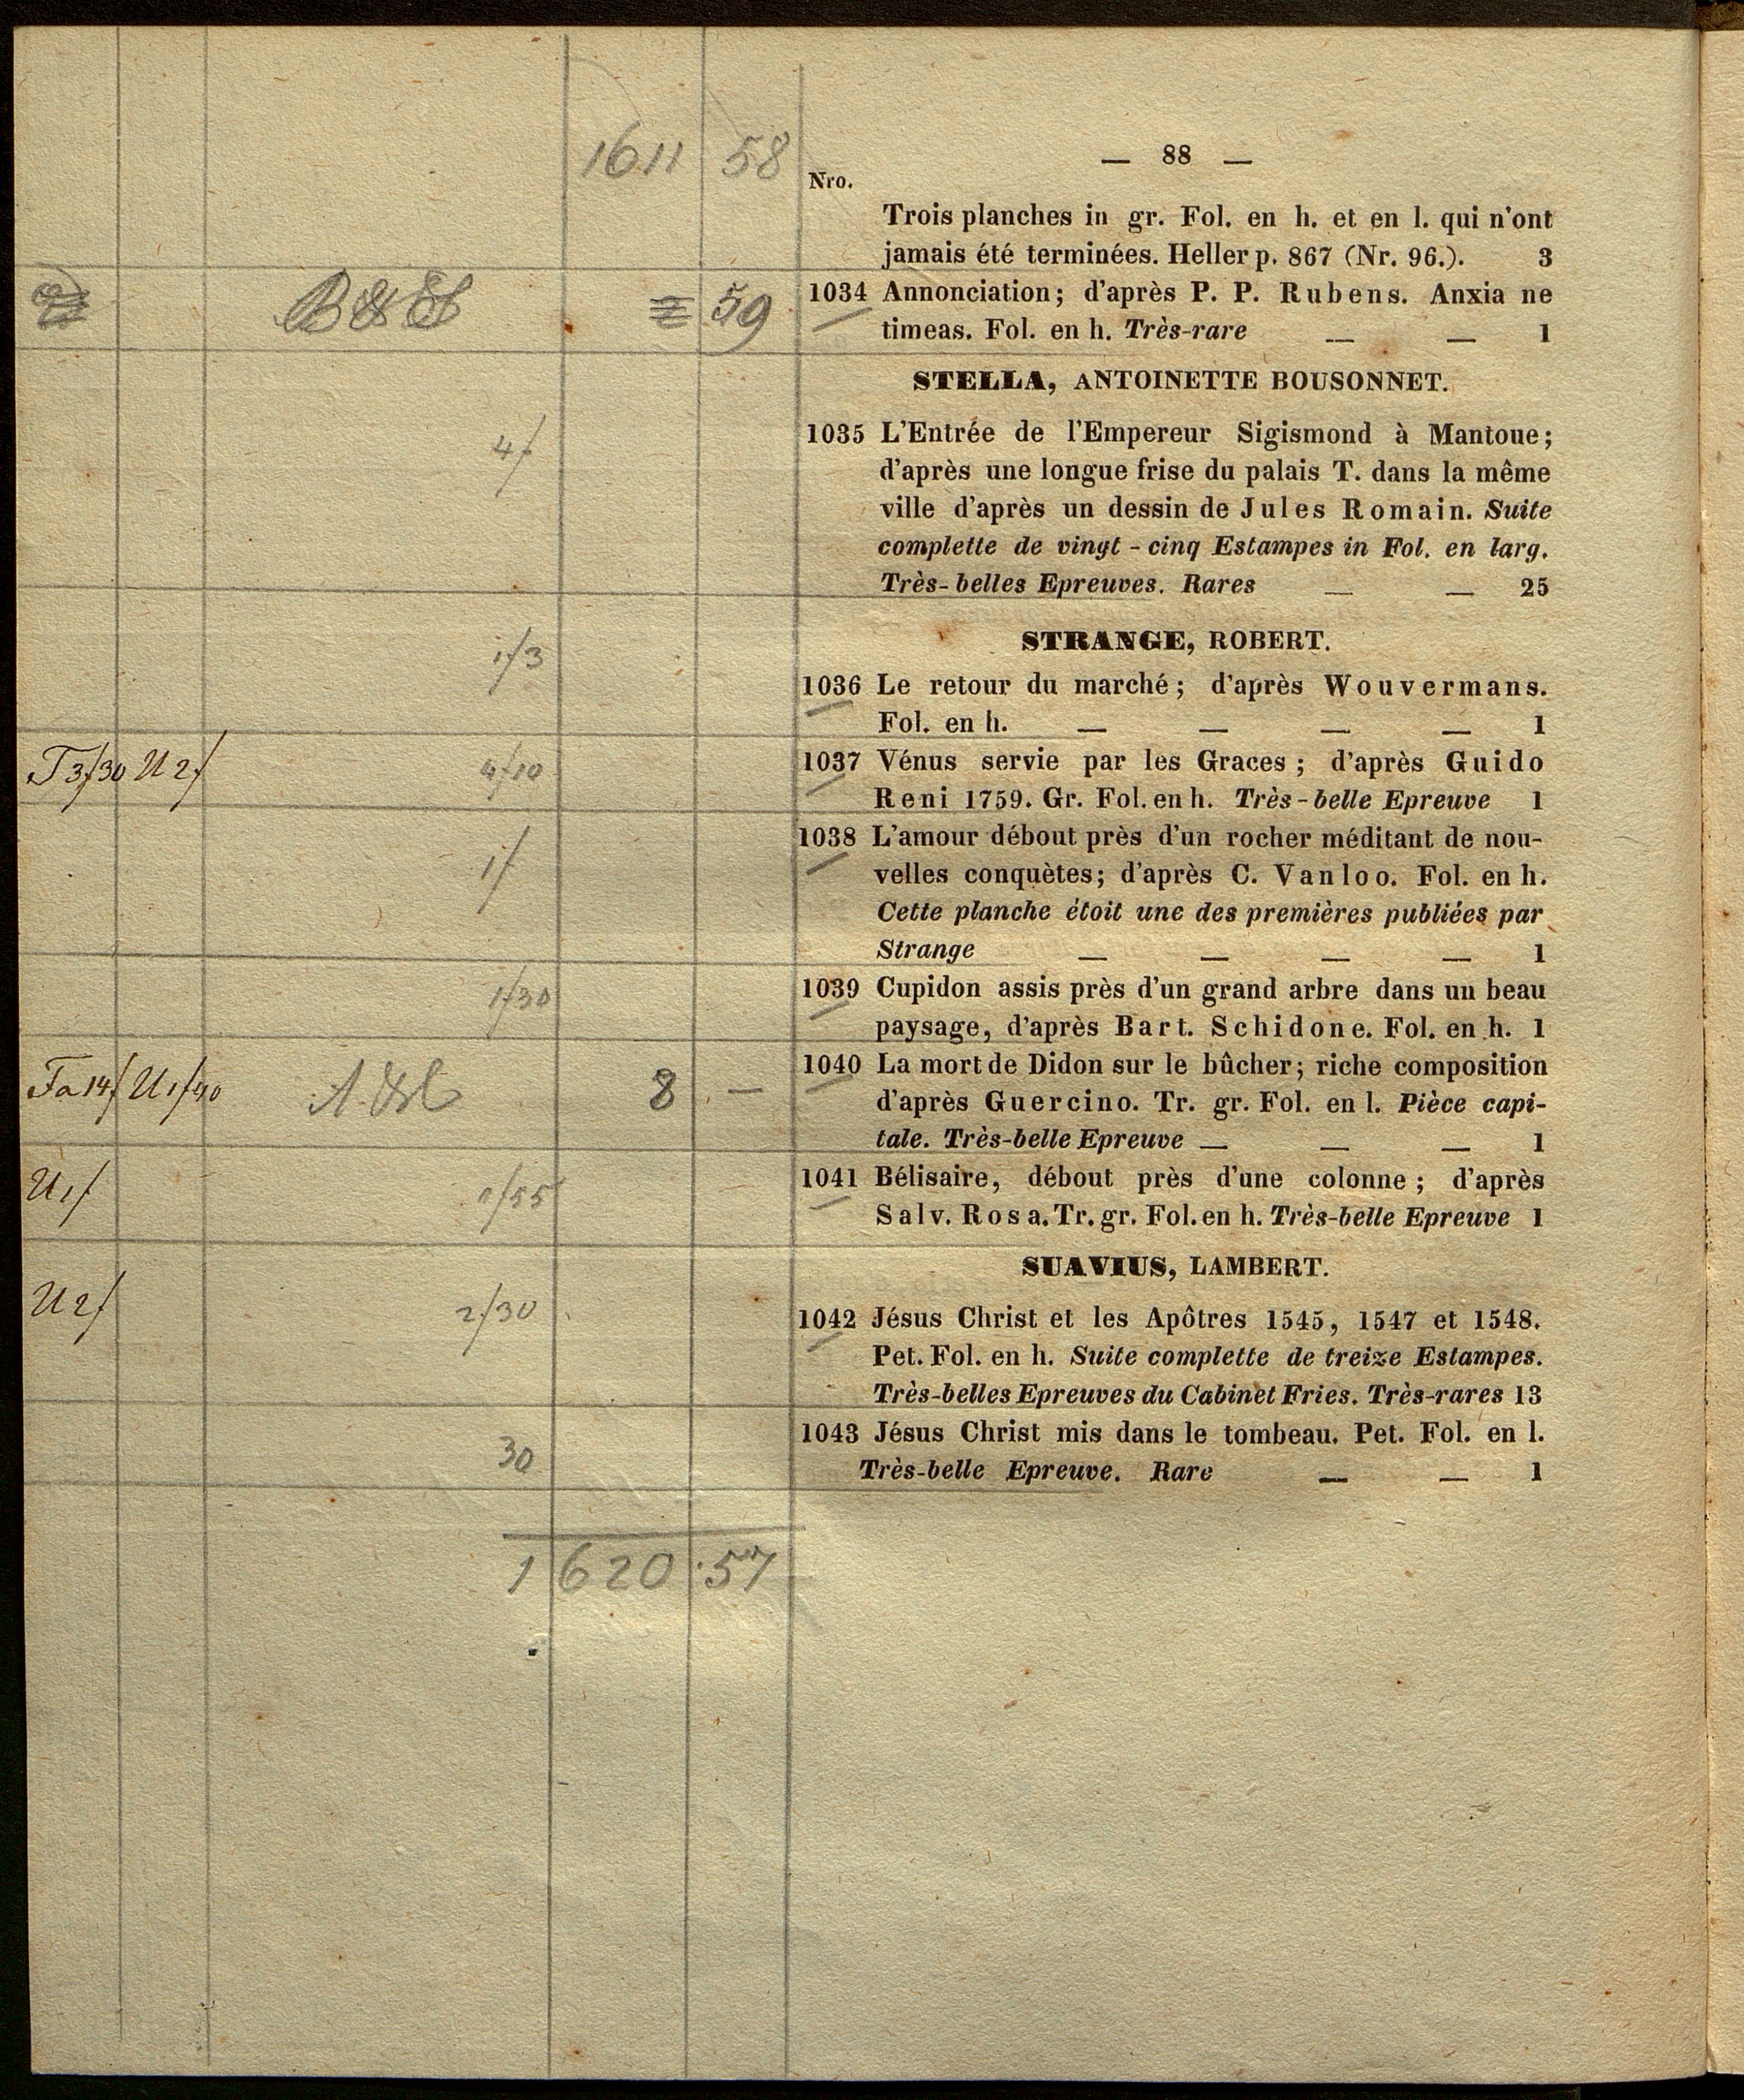 1611 58
— 88 —
Nro.
Trois planches in gr. Fol. en h. et en l. qui n'ont
jamais été terminées. Heller p. 867 (Nr. 96.). 3
59 1034 Annonciation; d'après P. P. Rubens. Anxia ne
timeas. Fol. en h. Très-rare — — 1
STELLA, ANTOINETTE BOUSONNET.
4/ 1035 L'Entrée de l'Empereur Sigismond à Mantoue;
d'après une longue frise du palais T. dans la même
ville d'après un dessin de Jules Romain. Suite
complette de vingt-cinq Estampes in Fol. en larg.
Très-belles Epreuves. Rares — — 25
STRANGE, ROBERT.
1/3 1036 Le retour du marché; d'après Wouvermans.
Fol. en h. — — — — 1
T 3/30 U 2/ 4/10 1037 Vénus servie par les Graces; d'après Guido
Reni 1759. Gr. Fol. en h. Très-belle Epreuve 1
1/ 1038 L'amour débout près d'un rocher méditant de nou-
velles conquètes; d'après C. Vanloo. Fol. en h.
Cette planche étoit une des premières publiées par
Strange — — — — 1
1/30 1039 Cupidon assis près d'un grand arbre dans un beau
paysage, d'après Bart. Schidone. Fol. en h. 1
Fa 14/ U 1/40 8 — 1040 La mort de Didon sur le bûcher; riche composition
d'après Guercino. Tr. gr. Fol. en l. Pièce capi-
tale. Très-belle Epreuve — — — 1
U 1/ 1/55 1041 Bélisaire, débout près d'une colonne; d'après
Salv. Rosa. Tr. gr. Fol. en h. Très-belle Epreuve 1
SUAVIUS, LAMBERT.
U 2/ 2/30 1042 Jésus Christ et les Apôtres 1545, 1547 et 1548.
Pet. Fol. en h. Suite complette de treize Estampes.
Très-belles Epreuves du Cabinet Fries. Très-rares 13
30 1043 Jésus Christ mis dans le tombeau. Pet. Fol. en l.
Très-belle Epreuve. Rare — — 1
1620.57